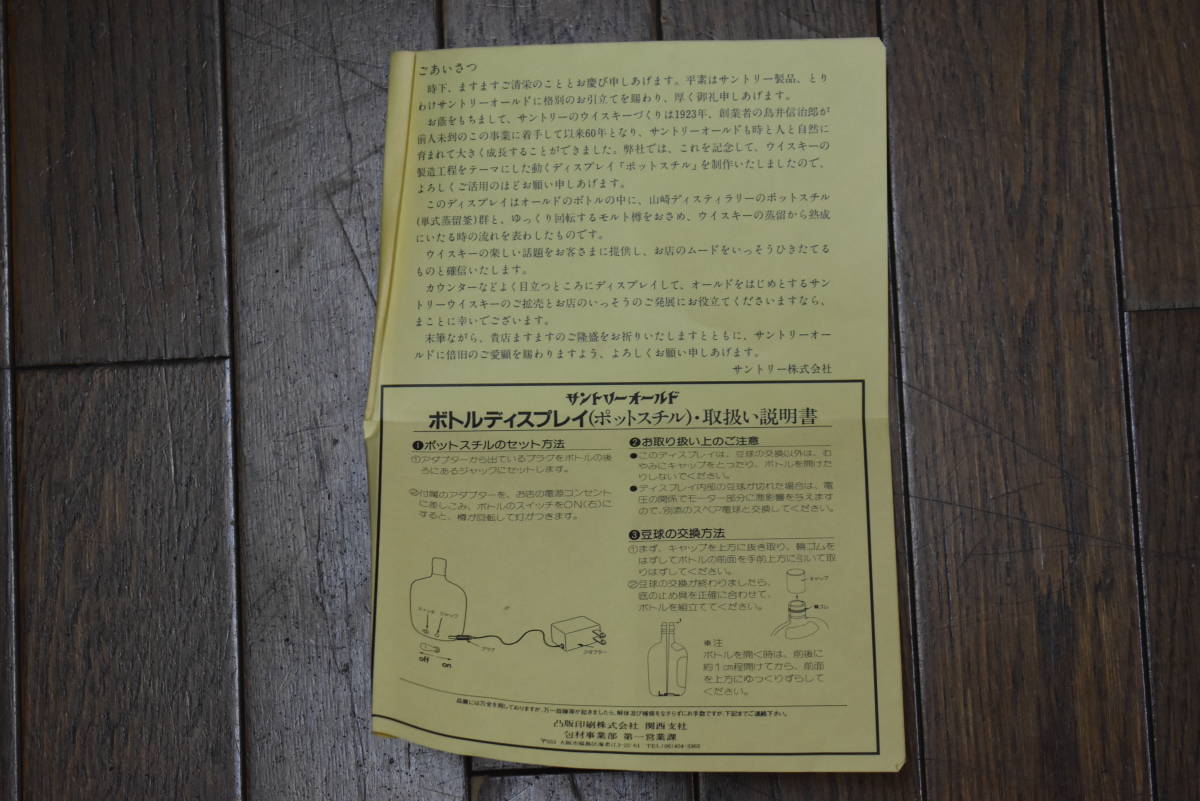 ごあいさつ
時下、ますますご清栄のこととお慶び申しあげます。平素はサントリー製品、とり
わけサントリーオールドに格別のお引立てを賜わり、厚く御礼申しあげます。
お蔭をもちまして、サントリーのウイスキーづくりは1923年、創業者の鳥井信治郎が
前人未到のこの事業に着手して以来60年となり、サントリーオールドも時と人と自然に
育まれて大きく成長することができました。弊社では、これを記念して、ウイスキーの
製造工程をテーマにした動くディスプレイ「ポットスチル」を制作いたしましたので、
よろしくご活用のほどお願い申しあげます。
このディスプレイはオールドのボトルの中に、山崎ディスティラリーのポットスチル
(単式蒸留釜)群と、ゆっくり回転するモルト樽をおさめ、ウイスキーの蒸留から熟成
にいたる時の流れを表わしたものです。
ウイスキーの楽しい話題をお客さまに提供し、お店のムードをいっそうひきたてる
ものと確信いたします。
カウンターなどよく目立つところにディスプレイして、オールドをはじめとするサン
トリーウイスキーのご拡売とお店のいっそうのご発展にお役立てくださいますなら、
まことに幸いでございます。
末筆ながら、貴店ますますのご隆盛をお祈りいたしますとともに、サントリーオー
ルドに倍旧のご愛顧を賜わりますよう、よろしくお願い申しあげます。
サントリー株式会社
サントリーオールド
ボトルディスプレイ(ポットスチル)・取扱い説明書
❶ポットスチルのセット方法
①アダプターから出ているプラグをボトルの後
ろにあるジャックにセットします。
②付属のアダプターを、お店の電源コンセント
に差しこみ、ボトルのスイッチをON(右)に
すると、樽が回転して灯がつきます。
スイッチ ジャック
プラグ
アダプター
off on
❷お取り扱い上のご注意
●このディスプレイは、豆球の交換以外は、む
やみにキャップをとったり、ボトルを開けた
りしないでください。
●ディスプレイ内部の豆球が切れた場合は、電
圧の関係でモーター部分に悪影響を与えます
ので、別添のスペア電球と交換してください。
❸豆球の交換方法
①まず、キャップを上方に抜き取り、輪ゴムを
はずしてボトルの前面を手前上方に引いて取
りはずしてください。
②豆球の交換が終わりましたら、
底の止め具を正確に合わせて、
ボトルを組立ててください。
キャップ
輪ゴム
※注
ボトルを開く時は、前後に
約1cm程開けてから、前面
を上方にゆっくりずらして
ください。
品質には万全を期しておりますが、万一故障等が起きましたら、解体及び補修をなさらずにお手数ですが、下記までご連絡下さい。
凸版印刷株式会社 関西支社
包材事業部 第一営業課
〒553 大阪市福島区海老江3-22-61 TEL(06)454-